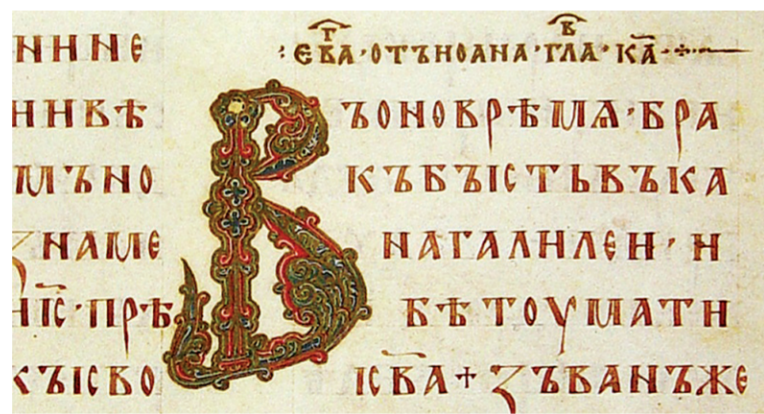 НИНЕ
НИВѢ
МЪНО
ЗНАМЕ
ИІС҃·ПРѢ
КЪІСВО
·ЕВⷢ҇А·ОТЪИОАНА·ГЛⷡ҇А·КА҃·+·
ВЪОНОВРѢМѦ·БРА
КЪБЪІСТЬВЪКА
НАГАЛИЛЕИ·И
БѢТОУМАТИ
ІСВ҃А+ЗЪВАНЪЖЕ